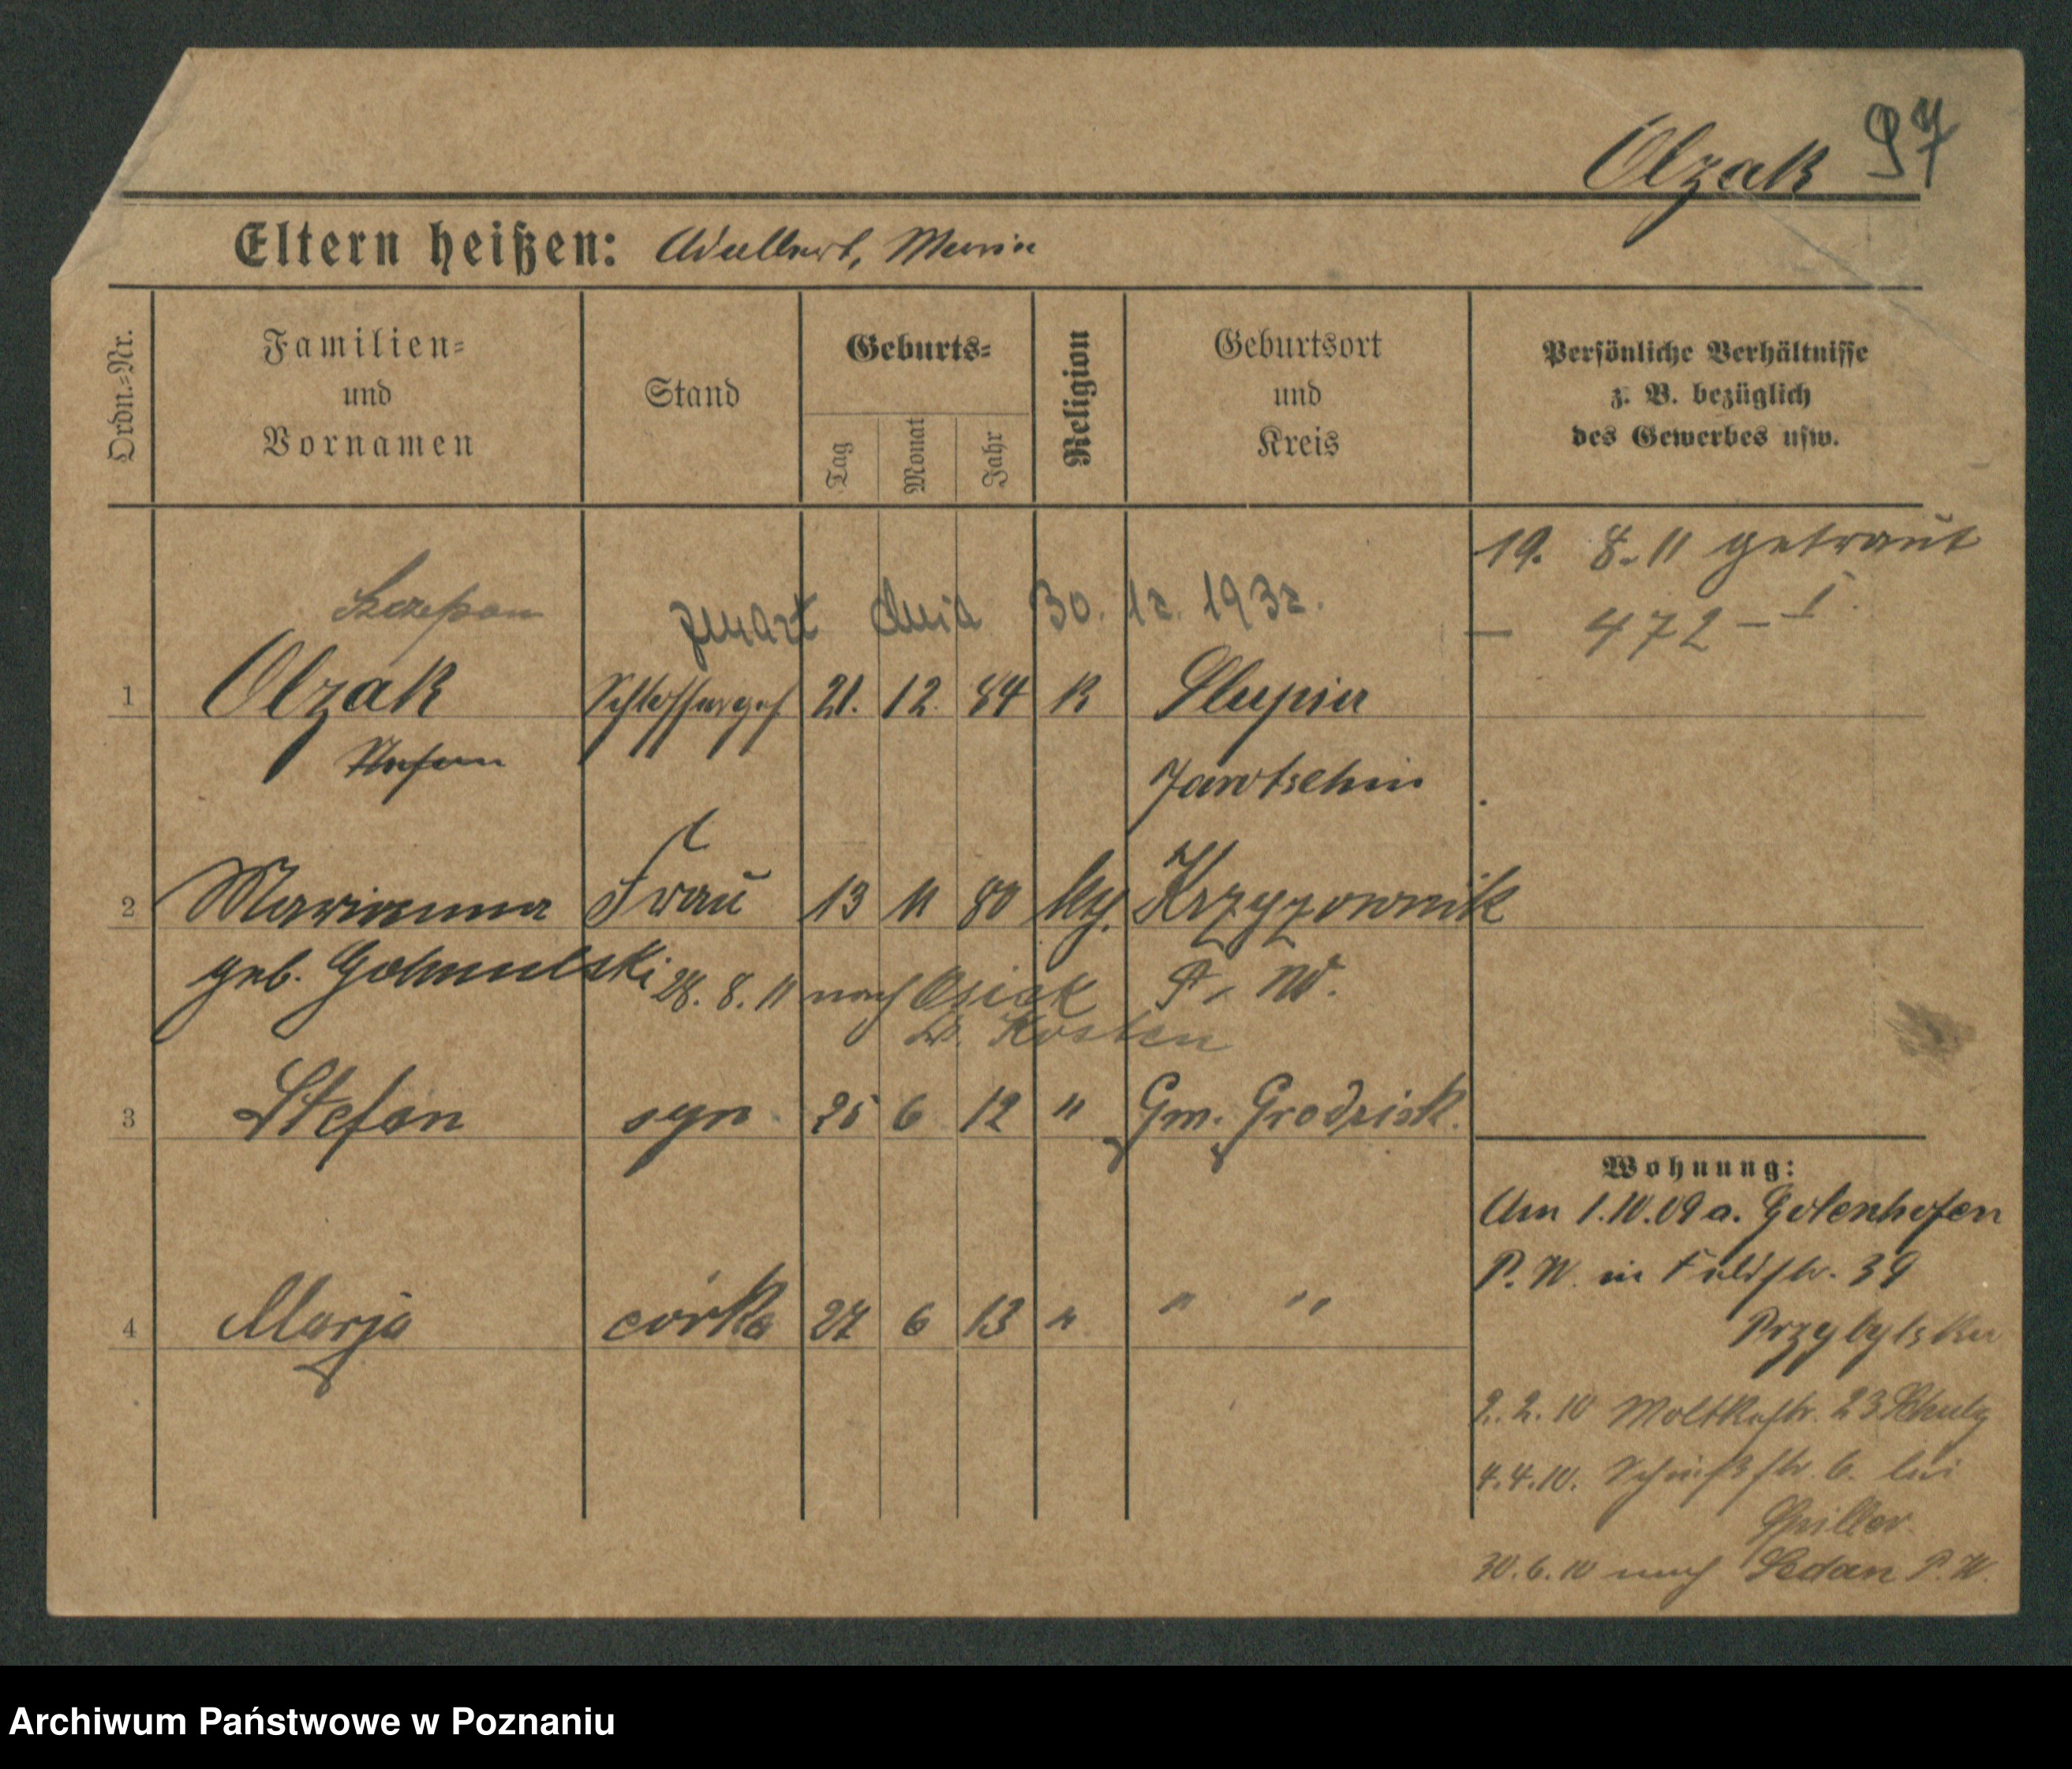 Olzak 97
Eltern heißen: Adalbert, Maria
Ordn.-Nr.
Familien- und Vornamen
Stand
Geburts-
Tag
Monat
Jahr
Religion
Geburtsort und Kreis
Persönliche Verhältnisse z. B. bezüglich des Gewerbes usw.
19. 8. 11 getraut
— 472 — I
Szczepan
zmarł dnia 30. 12. 1932.
1 Olzak Schlosserges 21. 12. 84 K Slupia
Stefan
Jarotschin
2 Marianna Frau 13 11 80 kg. Krzyzownik
geb. Gohmulski P. W.
28. 8. 11 nach Osiek
Kr. Kosten
3 Stefan syn 25 6 12 " Gm. Grodzisk.
4 Marja córka 27 6 13 " " "
Wohnung:
Am 1.10.09 a. Golenhofen
P. W. in Feldstr. 39
Przybylska
2. 2. 10 Moltkestr. 23 Schulz
4.4.10. 6. bei
30. 6. 10 nach Sedan P. W.
Archiwum Państwowe w Poznaniu